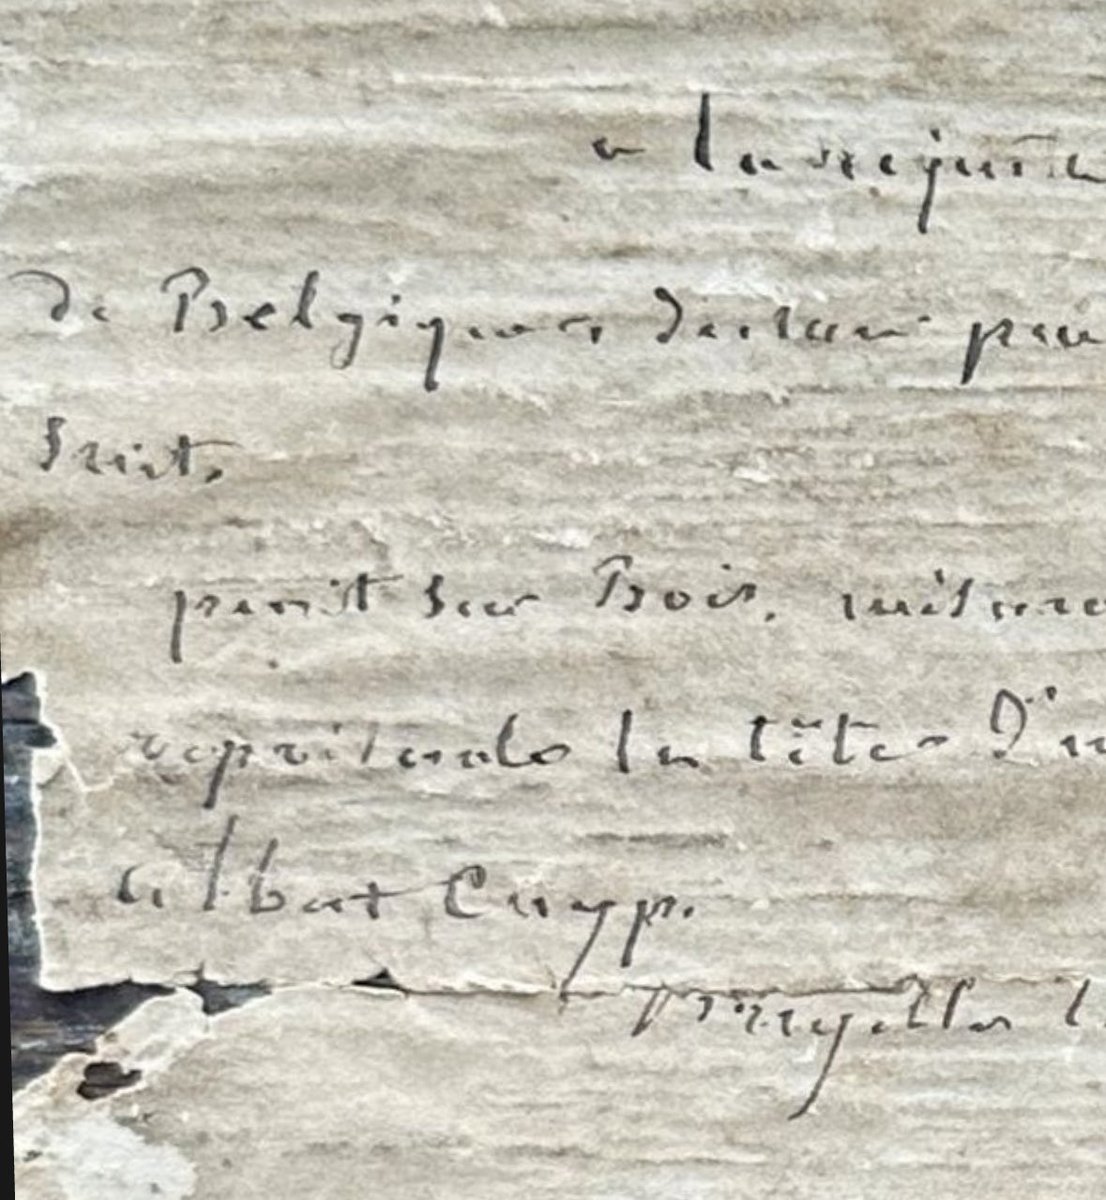 a la requête
de Belgique, declare
suit.
peint sur Bois, mesure
la tête d'u
albert Cuyp.
Bruxelles l